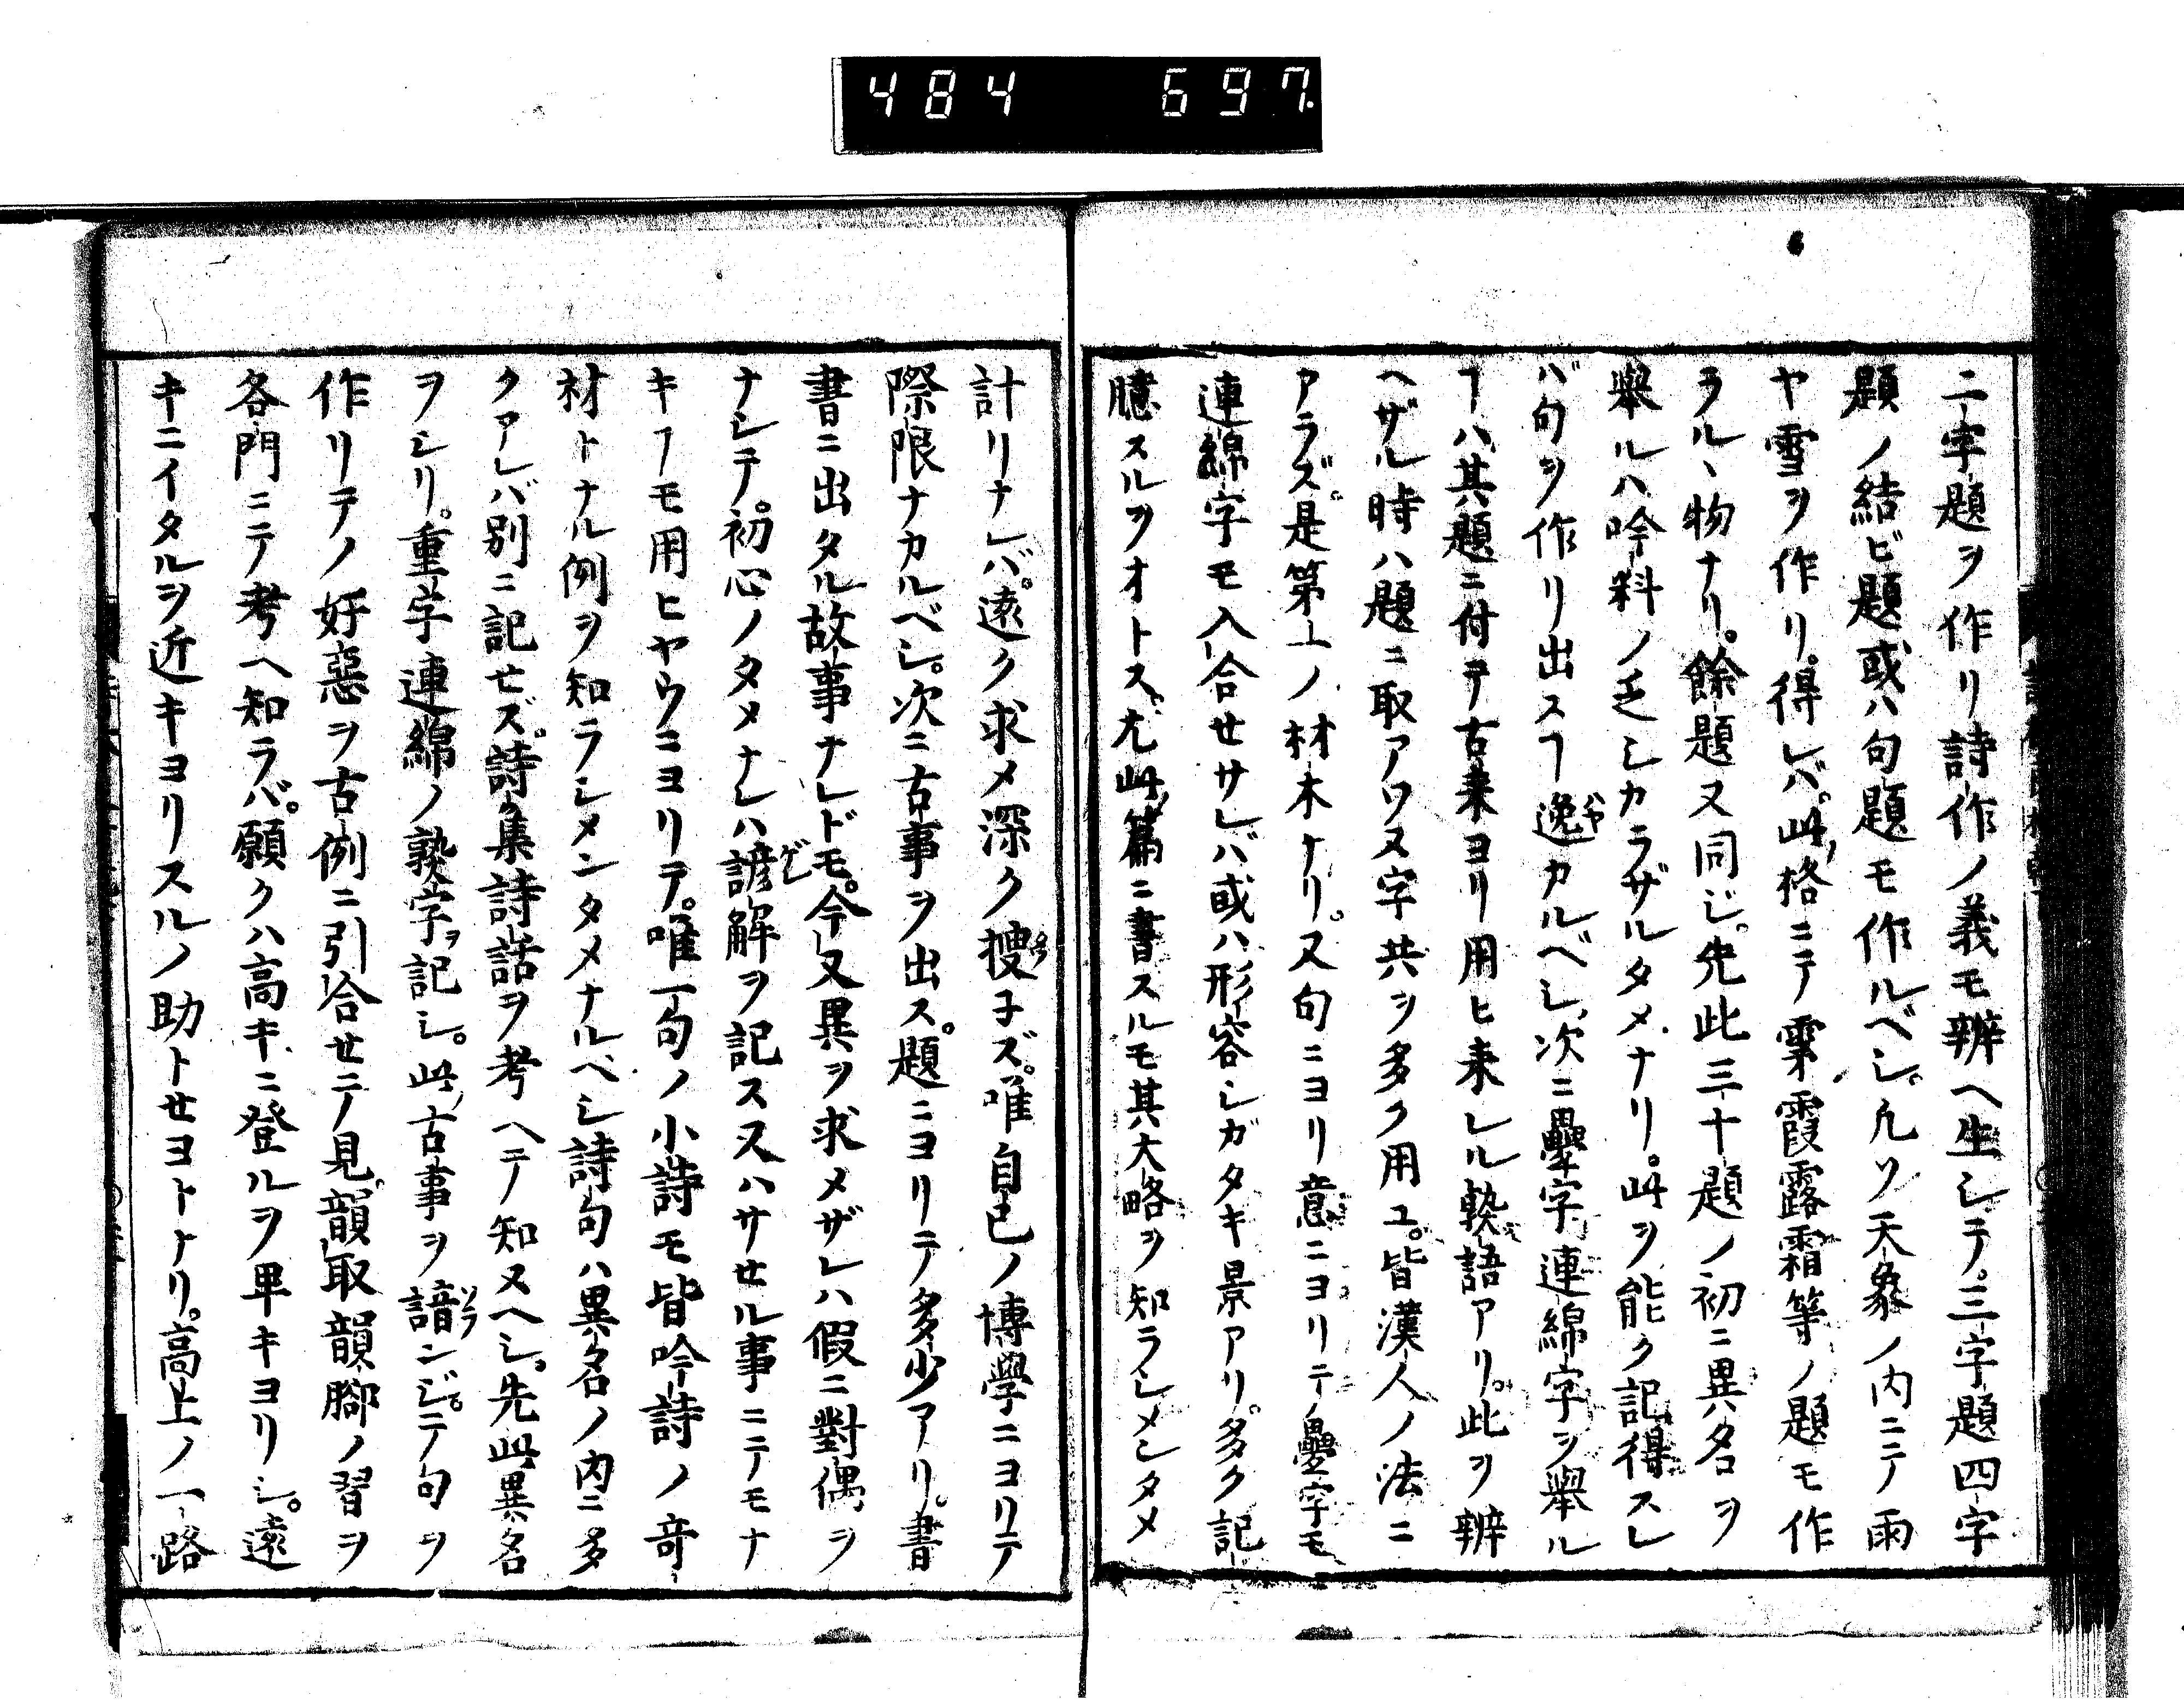 484 697
二字題ヲ作リ詩作ノ義モ辨ヘ生シテ。三字題四字
題ノ結ビ題或ハ句題モ作ルベシ。凡ソ天象ノ内ニテ雨
ヤ雪ヲ作リ。得レバ。此格ニテ雲霞露霜等ノ題モ作
ラル丶物ナリ。餘題又同じ。先此三十題ノ初ニ異名ヲ
舉ルハ吟料ノ乏シカラザルタメナリ。此ヲ能ク記得スレ
バ句ヲ作リ出スヿ逸カルベシ、次ニ疊字連綿字ヲ舉ル
ヿハ其題ニ付テ古来ヨリ用ヒ来レル熟語アリ。此ヲ辨
ヘザル時ハ題ニ取アワヌ字共ヲ多ク用ユ。皆漢人ノ法ニ
アラズ。是第一ノ材木ナリ。又句ニヨリ意ニヨリテ疊字モ
連綿字モ入合セサレバ或ハ形容シガタキ景アリ。多ク記
臆スルヲオトス。尤此篇ニ書スルモ其大略ヲ知ラシメンタメ
計リナレバ。遠ク求メ深ク捜子ズ。唯自己ノ博學ニヨリテ
際限ナカルベシ。次ニ古事ヲ出ス。題ニヨリテ多少アリ。書
書ニ出タル故事ナレドモ。今又異ヲ求メザレハ假ニ對偶ヲ
ナシテ。初心ノタメナレハ諺解ヲ記ススハサセル事ニテモナ
キヿモ用ヒヤウニヨリテ。唯一句ノ小詩モ皆吟詩ノ奇
材トナル例ヲ知ラシメンタメナルベシ詩句ハ異名ノ内ニ多
クアレバ別ニ記セズ。詩集詩話ヲ考ヘテ知ヌヘシ。先此異名
ヲシリ。重字連綿ノ熟字ヲ記シ。此古事ヲ諳ンジ。テ句ヲ
作リテノ好惡ヲ古例ニ引合セテ見。韻取韻腳ノ習ヲ
各門ニテ考ヘ知ラバ。願クハ高キニ登ルヲ卑キヨリシ。遠
キニイタルヲ近キヨリスルノ助トセヨトナリ。高上ノ一路